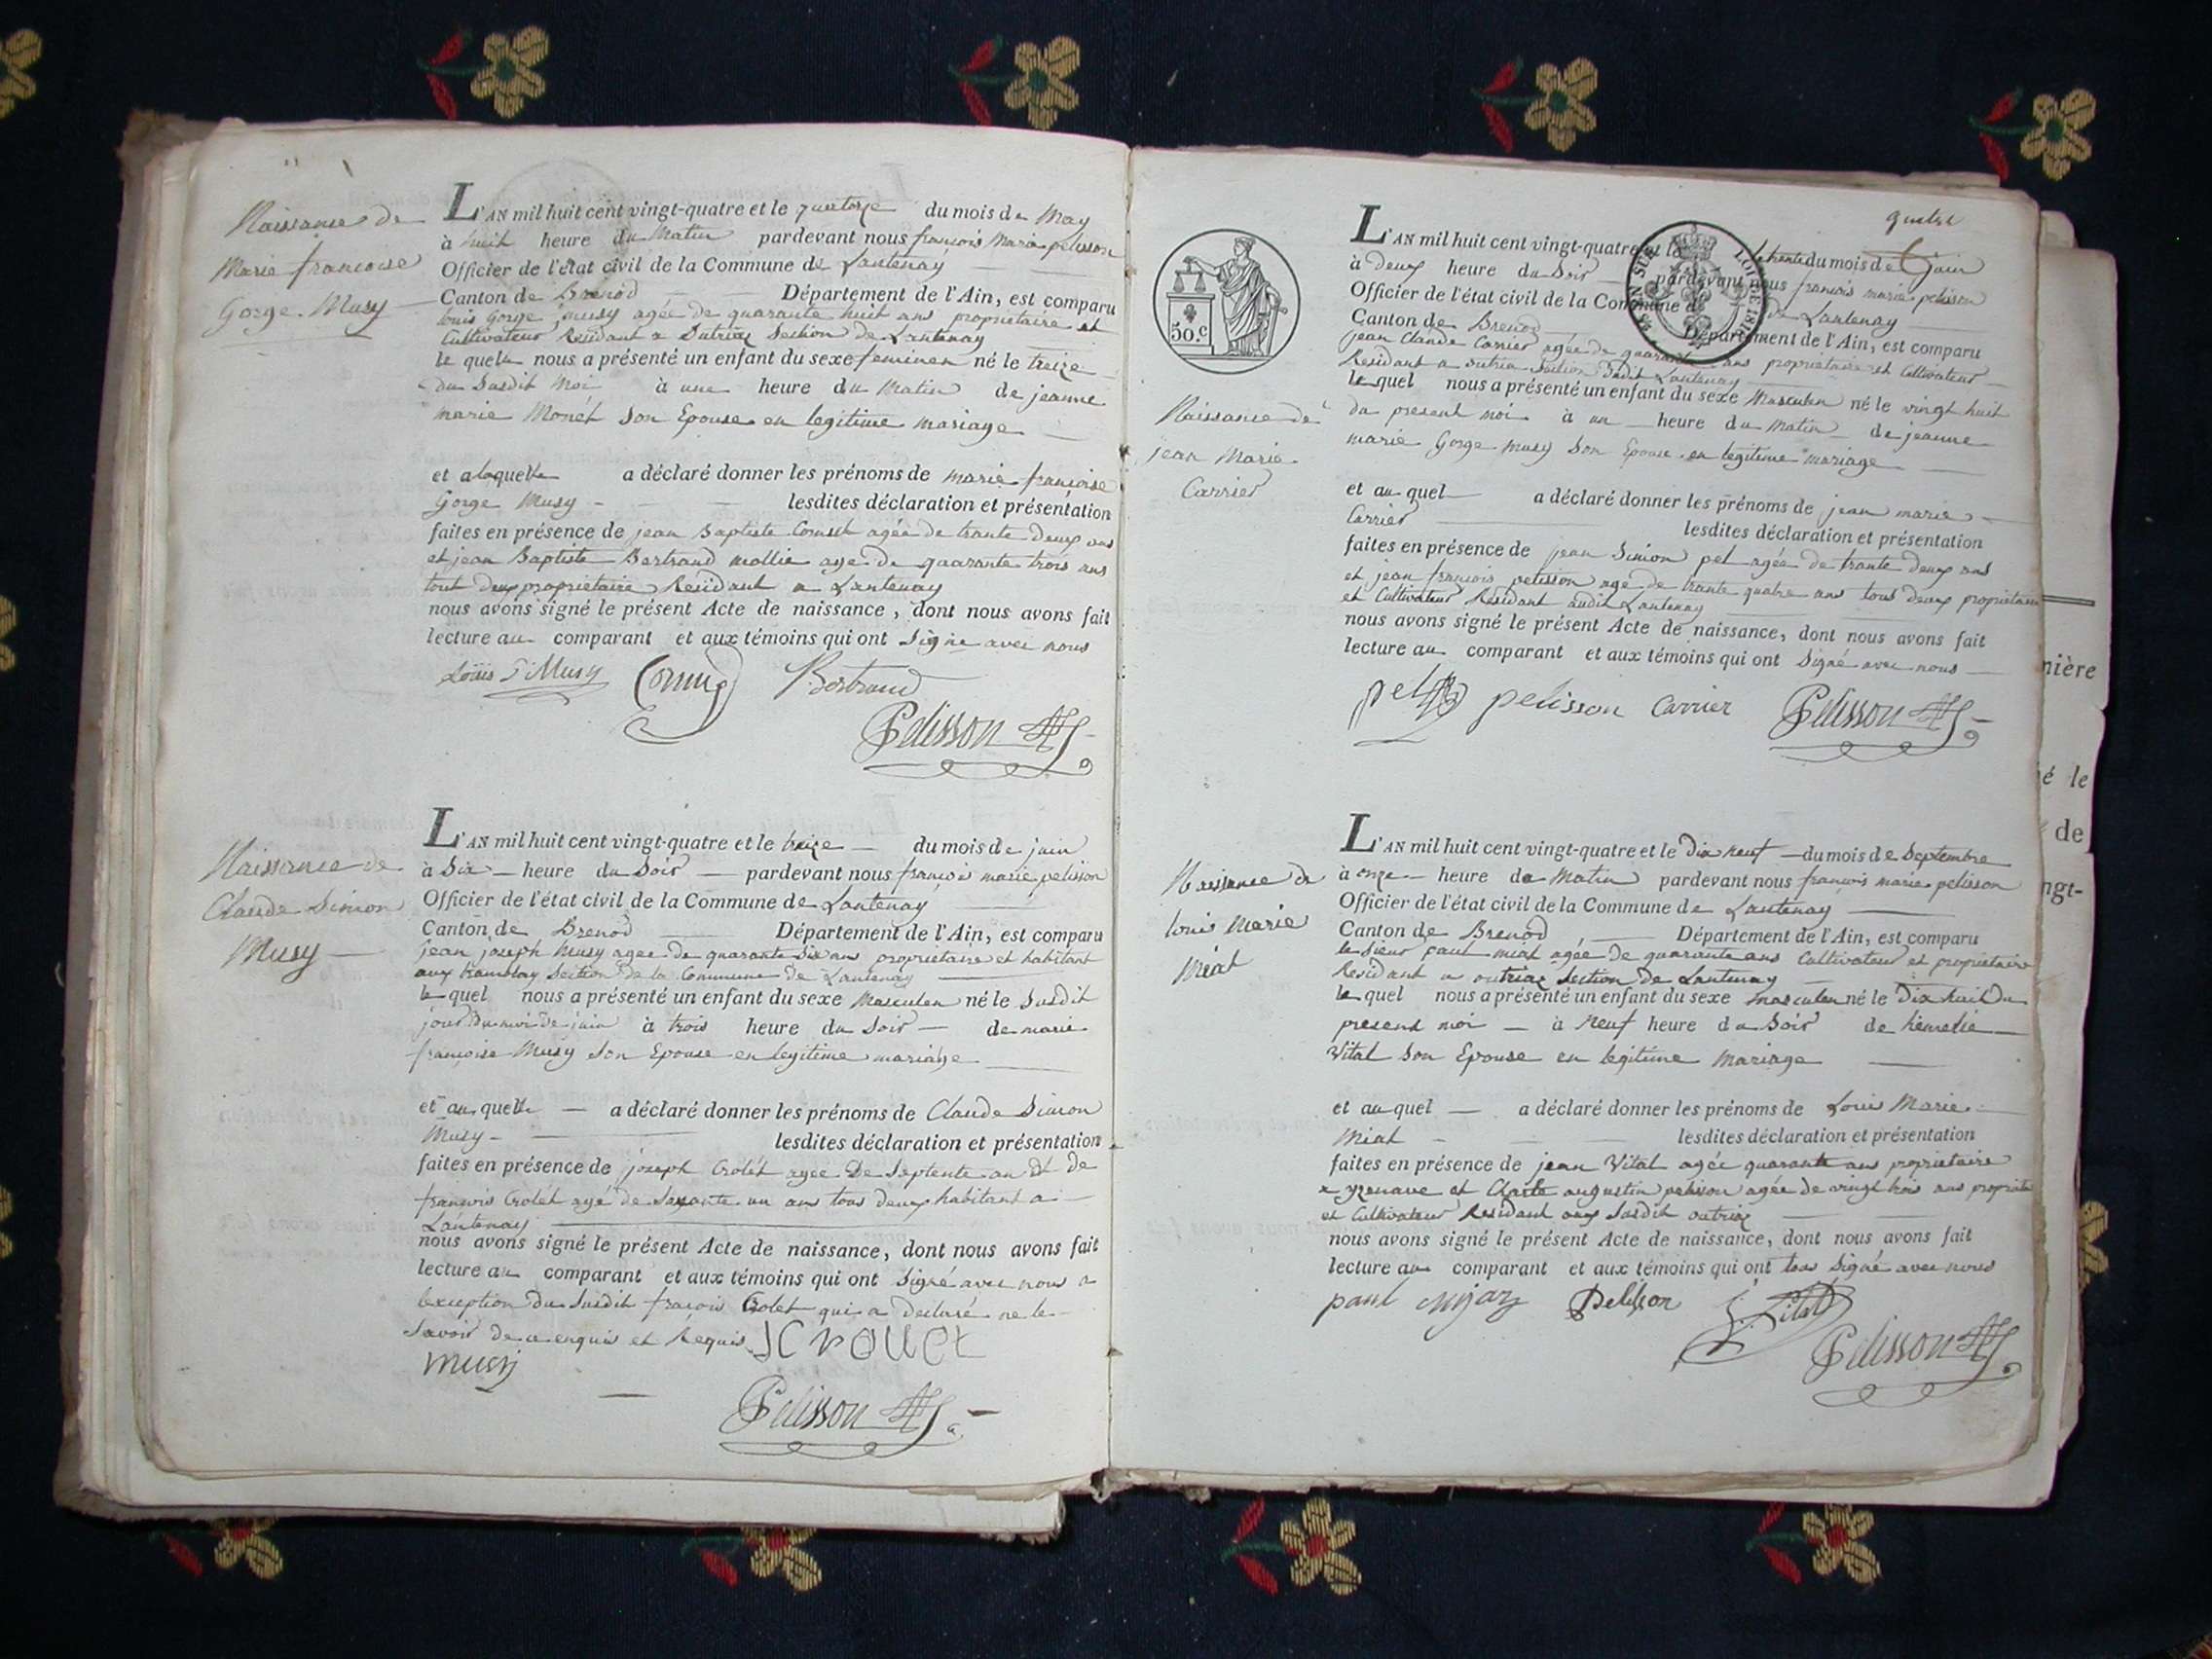 Naissance de
Marie francoise
Gorge Musy
L'AN mil huit cent vingt-quatre et le quatorze du mois de May
à huit heure du Matin pardevant nous françois Marie pelisson
Officier de l'état civil de la Commune de Lantenay
Canton de Brenod Département de l'Ain, est comparu
louis Gorge musy agée de quarante huit ans propriétaire et
Cultivateur Residant a Outriaz Section de Lantenay
le quelle nous a présenté un enfant du sexe feminen né le treize
du Susdit Moi à une heure du Matin de jeanne
marie Monét Son Epouse en legitime mariage
et a laquelle a déclaré donner les prénoms de marie françoise
Gorge Musy lesdites déclaration et présentation
faites en présence de jean Baptiste agée de trante Deux ans
et jean Baptiste Bertrand mollie age de quarante trois ans
tout deux propriétaire Residant a Lantenay
nous avons signé le présent Acte de naissance, dont nous avons fait
lecture au comparant et aux témoins qui ont Signe avec nous
Louis G Musy Bertrand
Pelisson
Naissance de
Claude Simon
Musy
L'AN mil huit cent vingt-quatre et le treize du mois de juin
à Six heure du Soir pardevant nous françois marie pelisson
Officier de l'état civil de la Commune de Lantenay
Canton de Brenod Département de l'Ain, est comparu
jean joseph Musy agee de quarante Six ans propriétaire et habitant
aux tramblay Section de la Commune de Lantenay
le quel nous a présenté un enfant du sexe Masculen né le Susdit
jour du moi de juin à trois heure du Soir de marie
françoise Musy Son Epouse en legitime mariage
et au quelle a déclaré donner les prénoms de Claude Simon
Musy lesdites déclaration et présentation
faites en présence de joseph Crolét agée De Septente an et de
françois Crolét agé de Soixante un ans tous deux habitant a
Lantenay
nous avons signé le présent Acte de naissance, dont nous avons fait
lecture au comparant et aux témoins qui ont Signé avec nous a
lexception du Susdit françois Crolet qui a declaré ne le
Savoir de ce enquis et Requis
musy
Pelisson
quatre
50.c
LOI DE 1816
Naissance de
jean Marie
Carrier
L'AN mil huit cent vingt-quatre et le trente du mois de juin
à Deux heure du Soir pardevant nous françois marie pelisson
Officier de l'état civil de la Commune de Lantenay
Canton de Brenod Département de l'Ain, est comparu
jean Claude Carrier agée de quarante ans propriétaire et Cultivateur
Residant a outriaz Section dudit Lantenay
le quel nous a présenté un enfant du sexe Masculen né le vingt huit
du present moi à un heure du Matin de jeanne
marie Gorge musy Son Epouse en legitime mariage
et au quel a déclaré donner les prénoms de jean marie
Carrier lesdites déclaration et présentation
faites en présence de jean Simon pel agée de trante deux ans
et jean françois pelisson age de trante quatre ans tous deux propriétaire
et Cultivateur Résidant audit Lantenay
nous avons signé le présent Acte de naissance, dont nous avons fait
lecture au comparant et aux témoins qui ont Signé avec nous
pel pelisson Carrier Pelisson
Naissance de
louis Marie
Miat
L'AN mil huit cent vingt-quatre et le Dix neuf du mois de Septembre
à onze heure du Matin pardevant nous françois marie pelisson
Officier de l'état civil de la Commune de Lantenay
Canton de Brenod Département de l'Ain, est comparu
le Sieur paul miat agée de quarante ans Cultivateur et propriétaire
Residant a outriaz Section de Lantenay
le quel nous a présenté un enfant du sexe masculen né le Dix huit du
present moi à Neuf heure du Soir de
Vital Son Epouse en legitime Mariage
et au quel a déclaré donner les prénoms de Louis Marie
Miat lesdites déclaration et présentation
faites en présence de jean Vital agée quarante ans propriétaire
a yzenave et Charle augustin pelisson agée de vingt trois ans
et Cultivateur Residant aux Susdit outriaz
nous avons signé le présent Acte de naissance, dont nous avons fait
lecture au comparant et aux témoins qui ont tous Signé avec nous
paul Pelisson Vital
Pelisson
nière
é le
de
ngt-